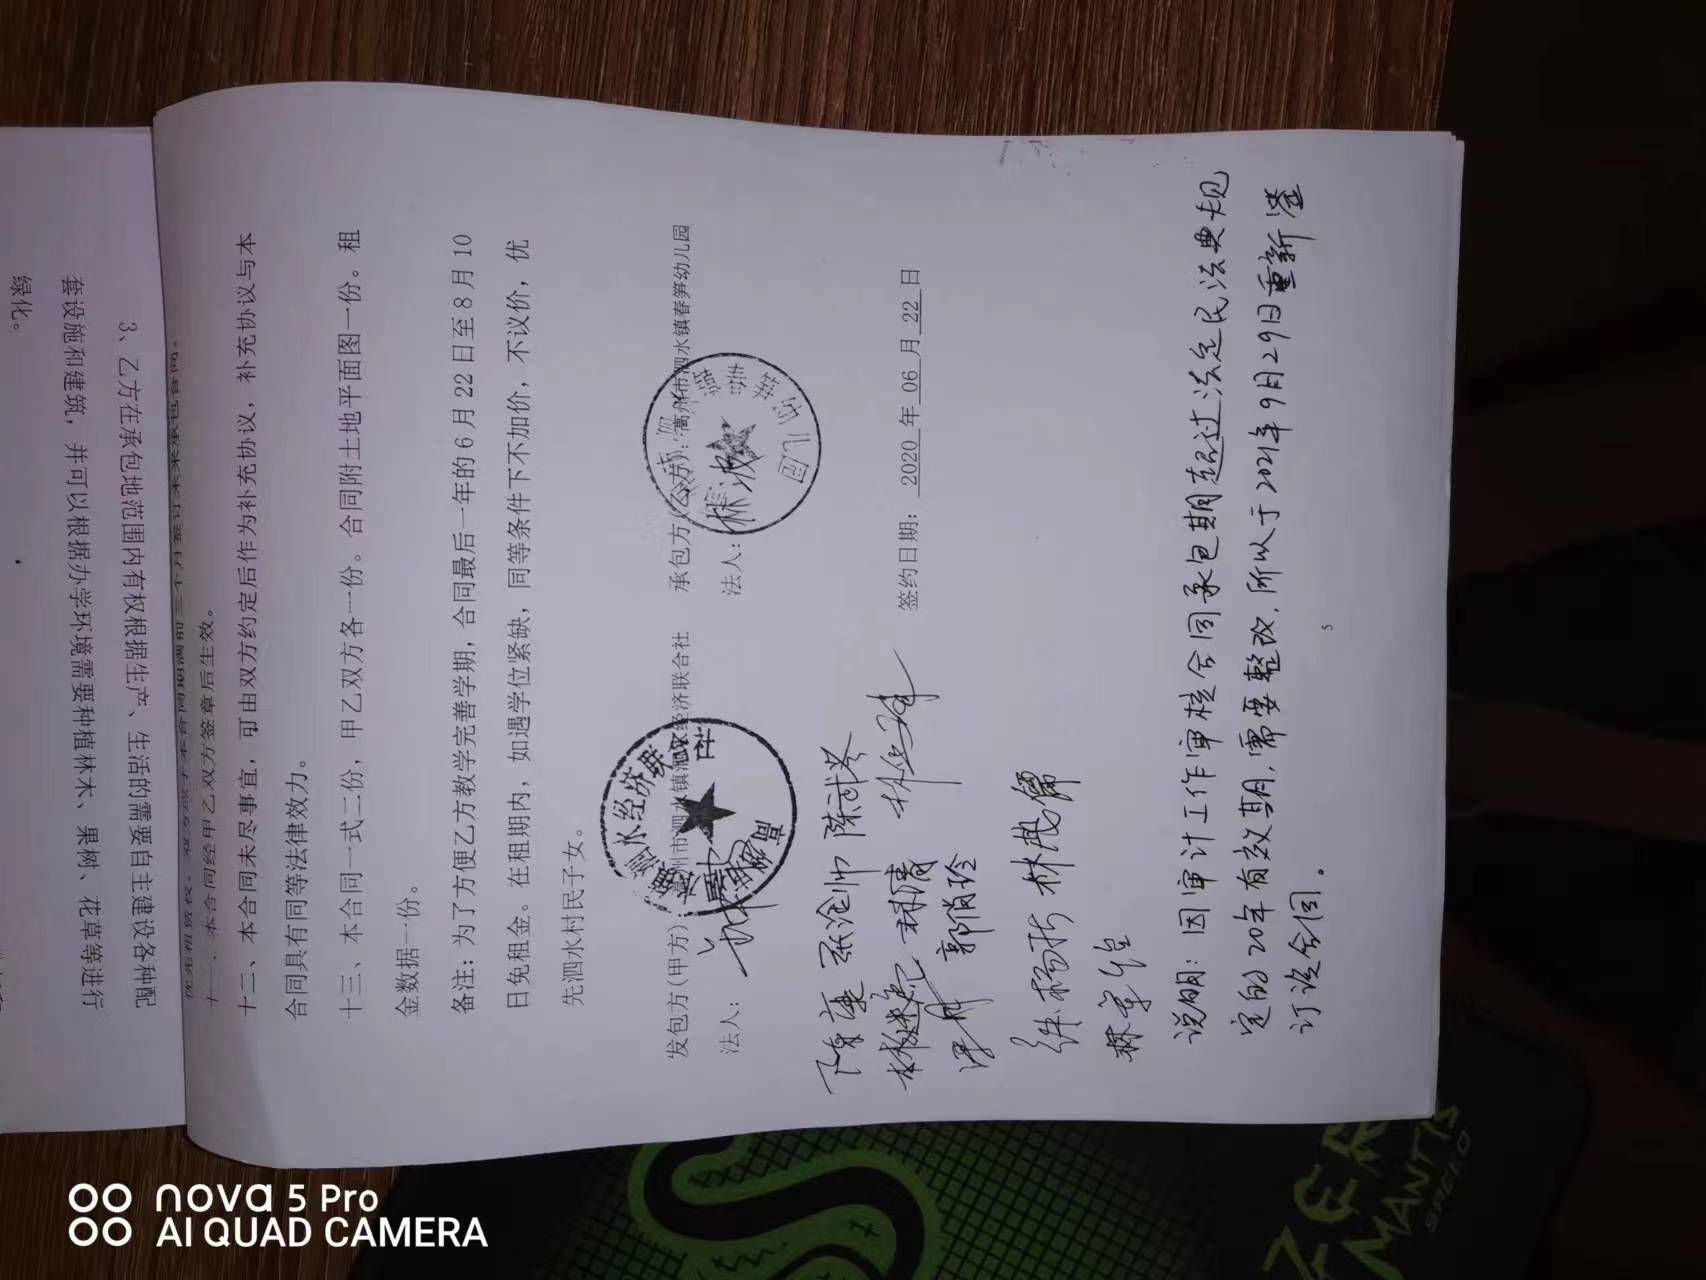 绿化。
套设施和建筑，并可以根据办学环境需要种植林木、果树、花草等进行
3、乙方在承包地范围内有权根据生产、生活的需要自主建设各种配
十一、本合同经甲乙双方签章后生效。
十二、本合同未尽事宜，可由双方约定后作为补充协议，补充协议与本
合同具有同等法律效力。
十三、本合同一式二份，甲乙双方各一份。合同附土地平面图一份。租
金数据一份。
备注：为了方便乙方教学完善学期，合同最后一年的6月22日至8月10
日免租金。在租期内，如遇学位紧缺，同等条件下不加价，不议价，优
先泗水村民子女。
发包方（甲方）：高州市泗水镇泗水经济联合社
承包方（乙方）：高州市泗水镇春笋幼儿园
法人：
法人：
签约日期：2020年06月22日
林茂儒
郭肖玲
说明：因审计工作审核合同承包期超过法定民法典规
定的20年有效期，需要整改，所以于2021年9月29日重新签
订该合同。
5
nova 5 Pro
AI QUAD CAMERA
MANTIS
SPEED